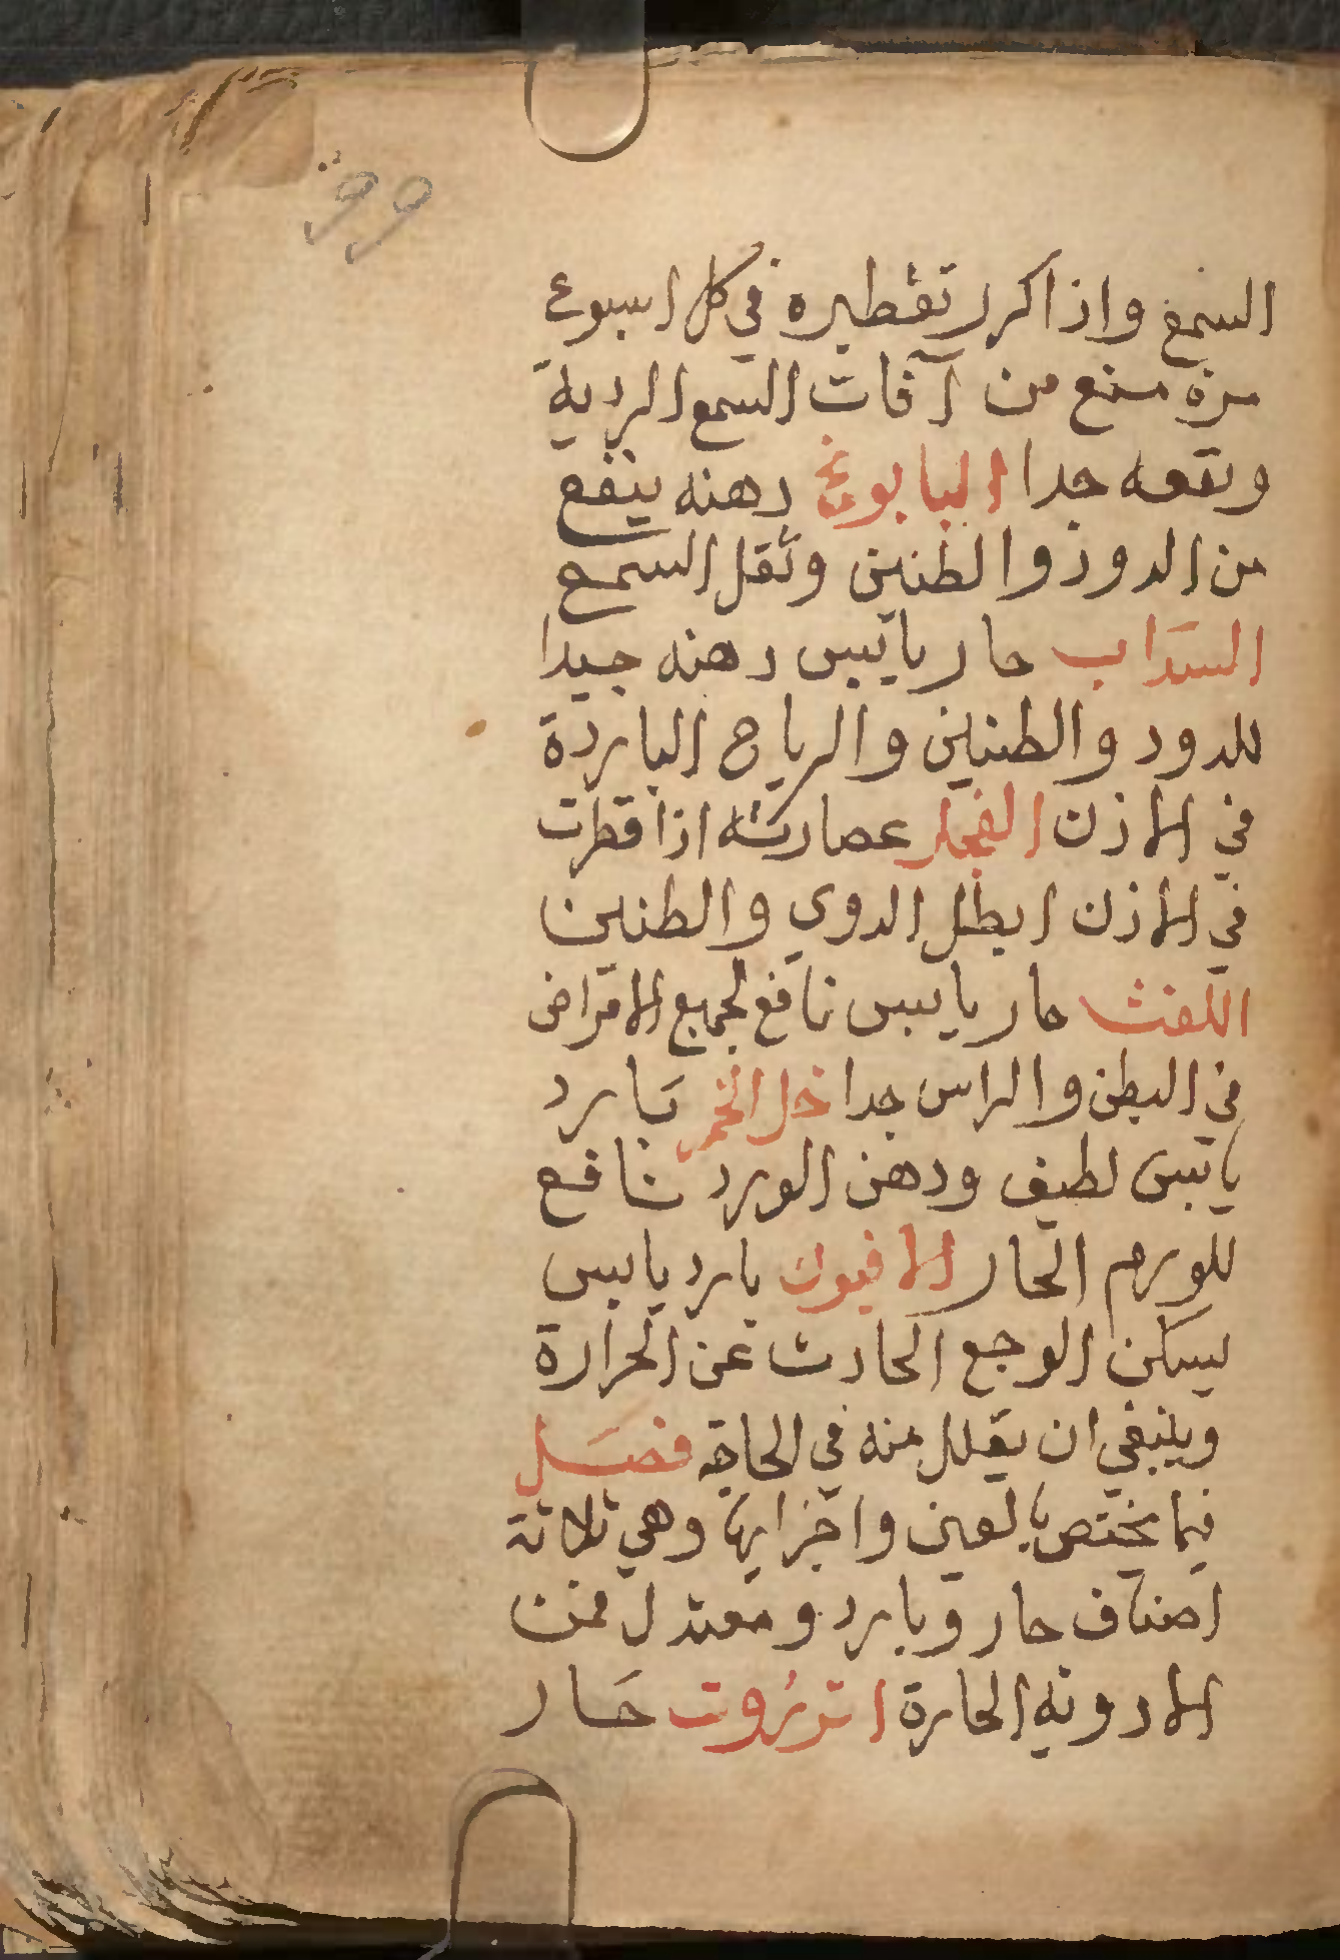 ٩٩
السمع واذا كرر تقطيره في كل اسبوع
مرة منع من آفات السمع الردية
ونفعه جدا البابونج دهنه ينفع
من الدود والطنين وثقل السمع
السداب حار يابس دهنه جيدا
للدود والطنين والرياح الباردة
في الاذن الفجل عصارته اذا قطرت
في الاذن ابطل الدوي والطنين
اللفت حار يابس نافع لجميع الامراض
في البطن والراس جدا خل الخمر بارد
يابس لطيف ودهن الورد نافع
للورم الحار الافيون بارد يابس
يسكن الوجع الحادث عن الحرارة
وينبغي ان يقلل منه في الحاجة فصل
فيما يختص بالعين واجزايها وهي ثلاثة
اصناف حار وبارد ومعتدل فمن
الادوية الحارة انزروت حار